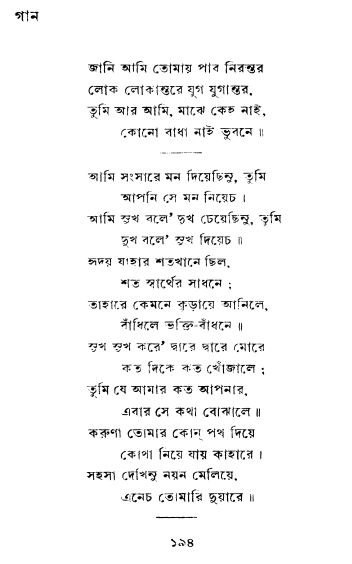 গান
জানি আমি তোমায় পাব নিরন্তর
লোক লোকান্তরে যুগ যুগান্তর,
তুমি আর আমি, মাঝে কেহ নাই,
কোনো বাধা নাই ভুবনে॥
আমি সংসারে মন দিয়েছিনু, তুমি
আপনি সে মন নিয়েচ।
আমি সুখ বলে’ দুখ চেয়েছিনু, তুমি
দুখ বলে’ সুখ দিয়েচ॥
হৃদয় যাহার শতখানে ছিল,
শত স্বার্থের সাধনে;
তাহারে কেমনে কুড়ায়ে আনিলে,
বাঁধিলে ভক্তি-বাঁধনে॥
সুখ সুখ করে’ দ্বারে দ্বারে মোরে
কত দিকে কত খোঁজালে;
তুমি যে আমার কত আপনার,
এবার সে কথা বোঝালে॥
করুণা তোমার কোন্ পথ দিয়ে
কোথা নিয়ে যায় কাহারে।
সহসা দেখিনু নয়ন মেলিয়ে,
এনেচ তোমারি দুয়ারে॥
১৯৪